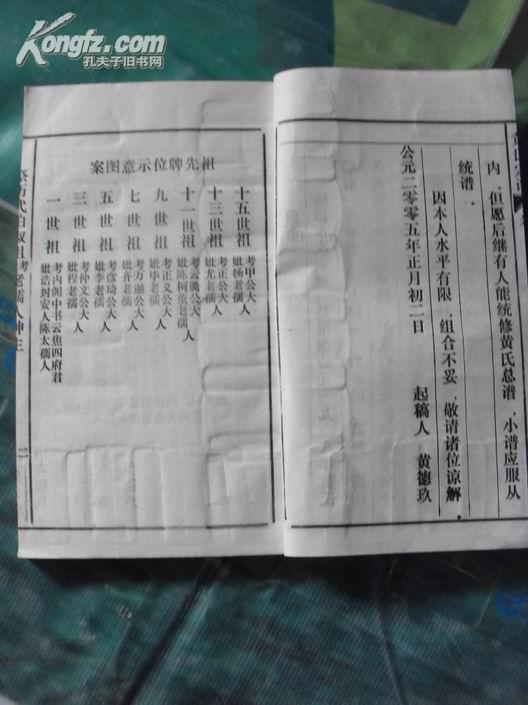 Kongfz.com
孔夫子旧书网
内，但愿后继有人能统修黄氏总谱，小谱应服从
统谱。
因本人水平有限，组合不妥，敬请诸位谅解。
公元二零零五年正月初二日 起稿人 黄德玖
祖先牌位示意图案
十五世祖 考甲公大人 妣杨老孺人
十三世祖 考正公大人 妣尤老孺人
十一世祖 考云衢公大人 妣陈柯董老孺人
九世祖 考正义公大人 妣毕老孺人
七世祖 考万通公大人 妣许老孺人
五世祖 考彦琦公大人 妣李老孺人
三世祖 考仲文公大人 妣程老孺人
一世祖 考内阁中书云焦四府君 妣诰封安人陈太孺人
二